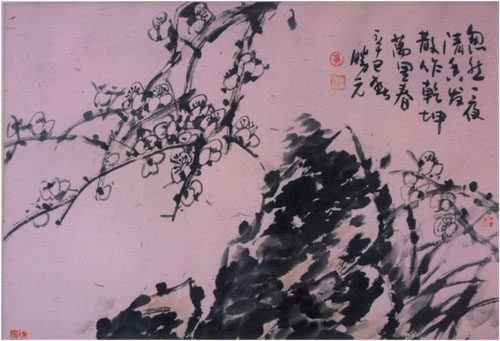 忽然一夜
清香发
散作乾坤
萬里春
辛巳